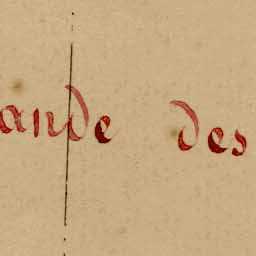 ande des